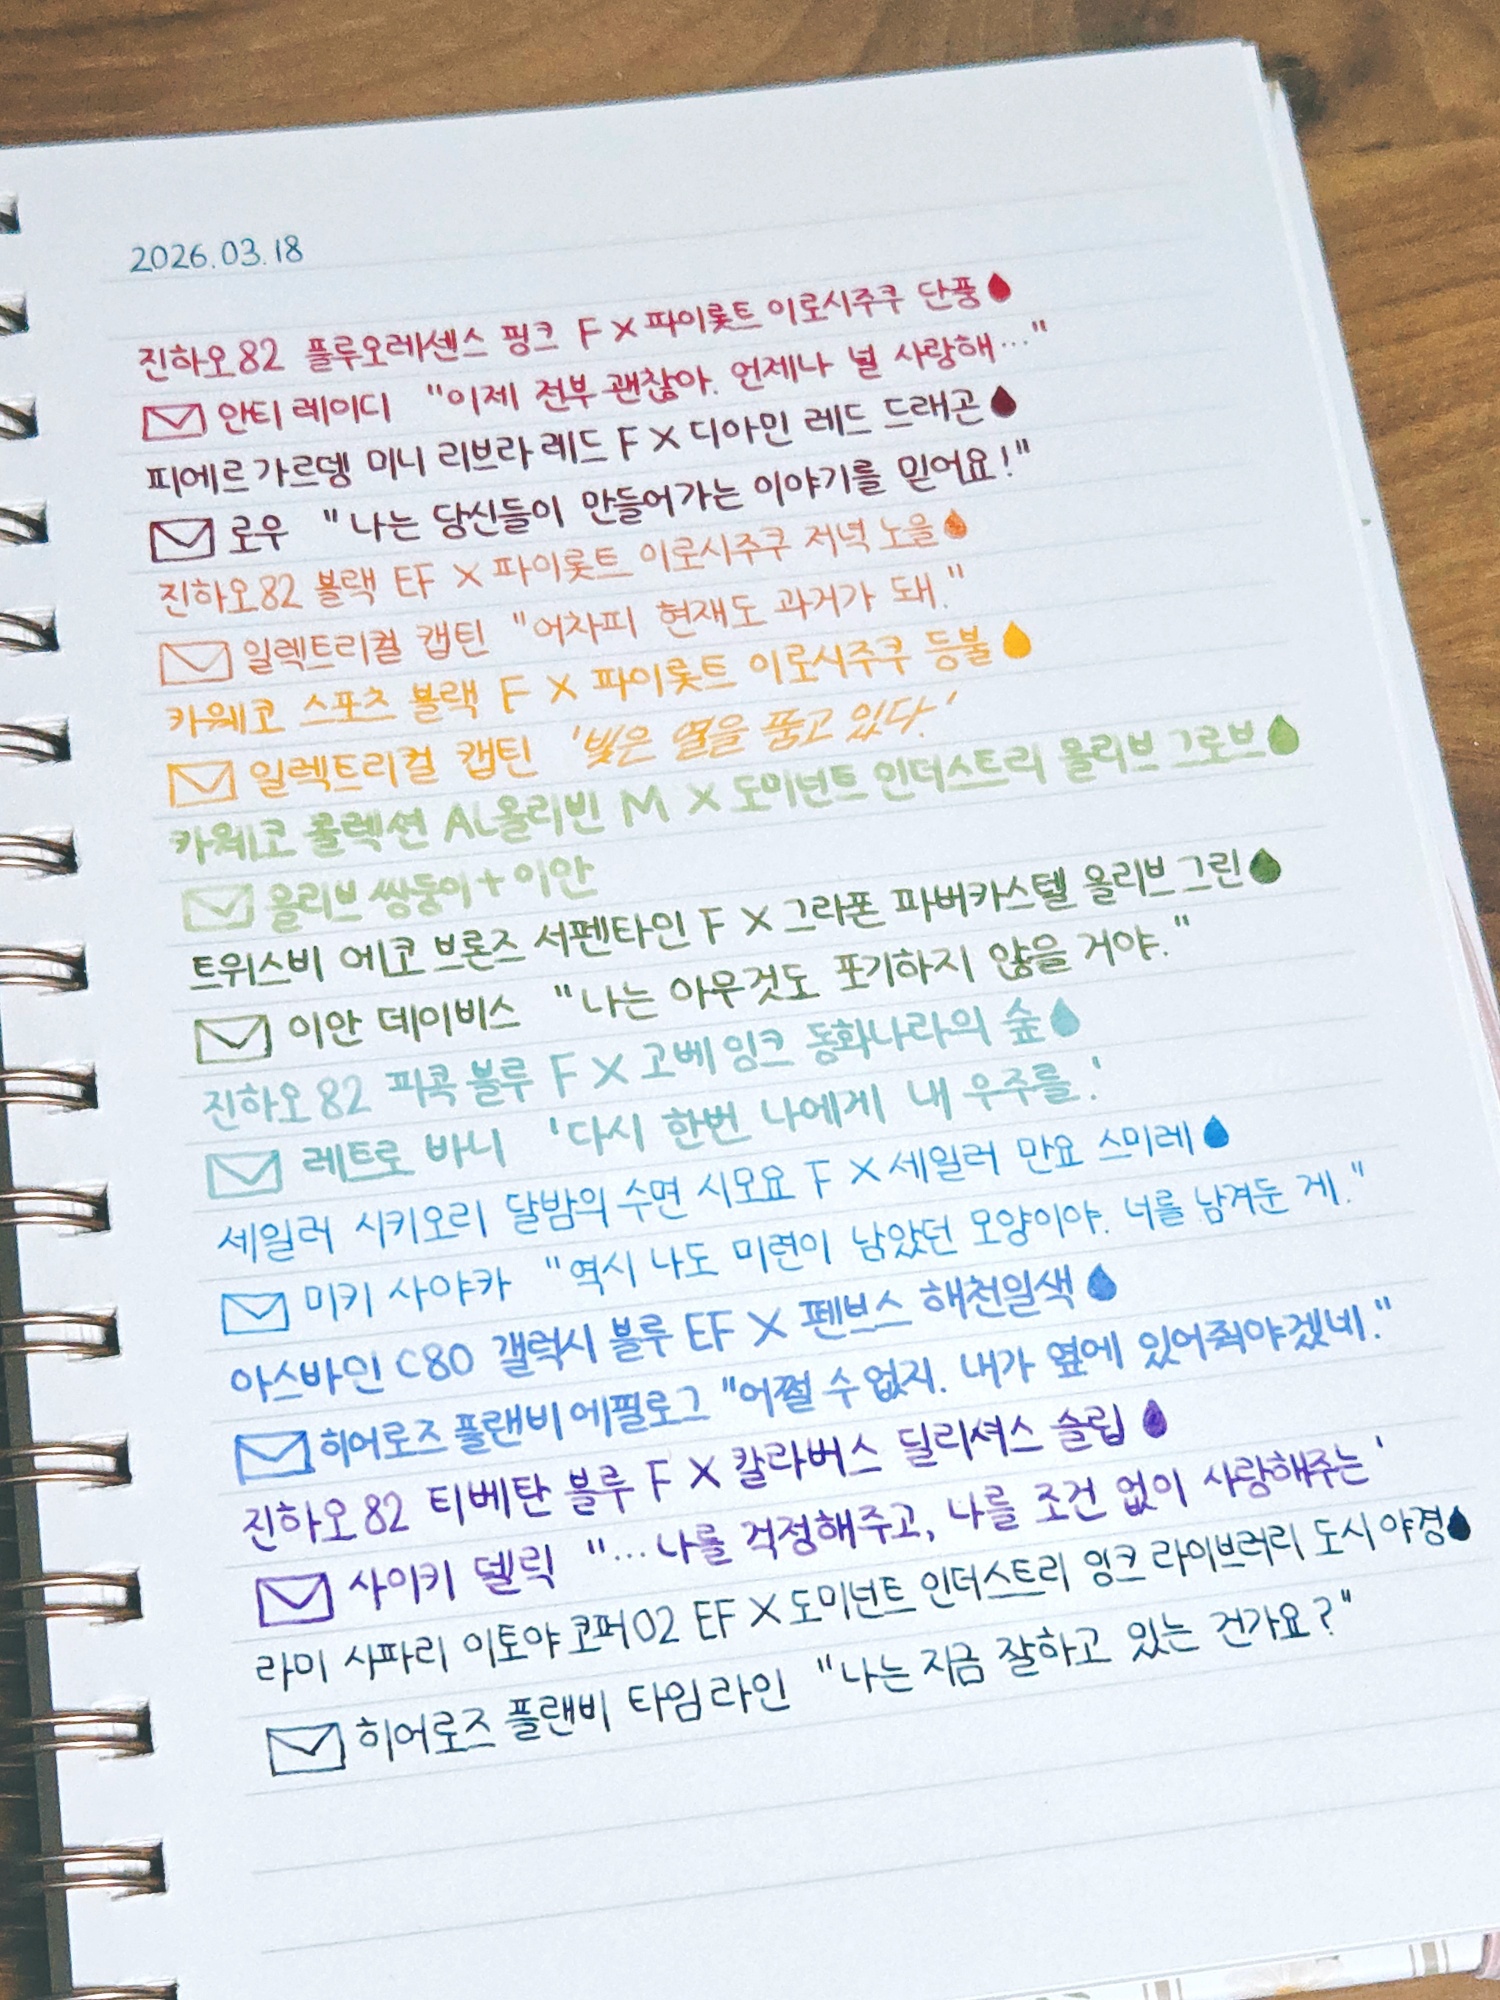 2026.03.18
진하오82 플루오레센스 핑크 F X 파이롯트 이로시주쿠 단풍
안티 레이디 "이제 전부 괜찮아. 언제나 널 사랑해…"
피에르 가르뎅 미니 리브라 레드 F X 디아민 레드 드래곤
로우 "나는 당신들이 만들어가는 이야기를 믿어요!"
진하오82 블랙 EF X 파이롯트 이로시주쿠 저녁 노을
일렉트리컬 캡틴 "어차피 현재도 과거가 돼."
카웨코 스포츠 블랙 F X 파이롯트 이로시주쿠 등불
일렉트리컬 캡틴 '빛은 열을 품고 있다.'
카웨코 콜렉션 AL올리빈 M X 도미넌트 인더스트리 올리브 그로브
올리브 쌍둥이 + 이안
트위스비 에코 브론즈 서펜타인 F X 그라폰 파버카스텔 올리브 그린
이안 데이비스 "나는 아무것도 포기하지 않을 거야."
진하오 82 피콕 블루 F X 고베 잉크 동화나라의 숲
레트로 바니 '다시 한번 나에게 내 우주를.'
세일러 시키오리 달밤의 수면 시모요 F X 세일러 만요 스미레
미키 사야카 "역시 나도 미련이 남았던 모양이야. 너를 남겨둔 게."
아스바인 C80 갤럭시 블루 EF X 펜브스 해천일색
히어로즈 플랜비 에필로그 "어쩔 수 없지. 내가 옆에 있어줘야겠네."
진하오 82 티베탄 블루 F X 칼라버스 딜리셔스 슬립
사이키 델릭 "…나를 걱정해주고, 나를 조건 없이 사랑해주는'
라미 사파리 이토야 코퍼02 EF X 도미넌트 인더스트리 잉크 라이브러리 도시 야경
히어로즈 플랜비 타임라인 "나는 지금 잘하고 있는 건가요?"